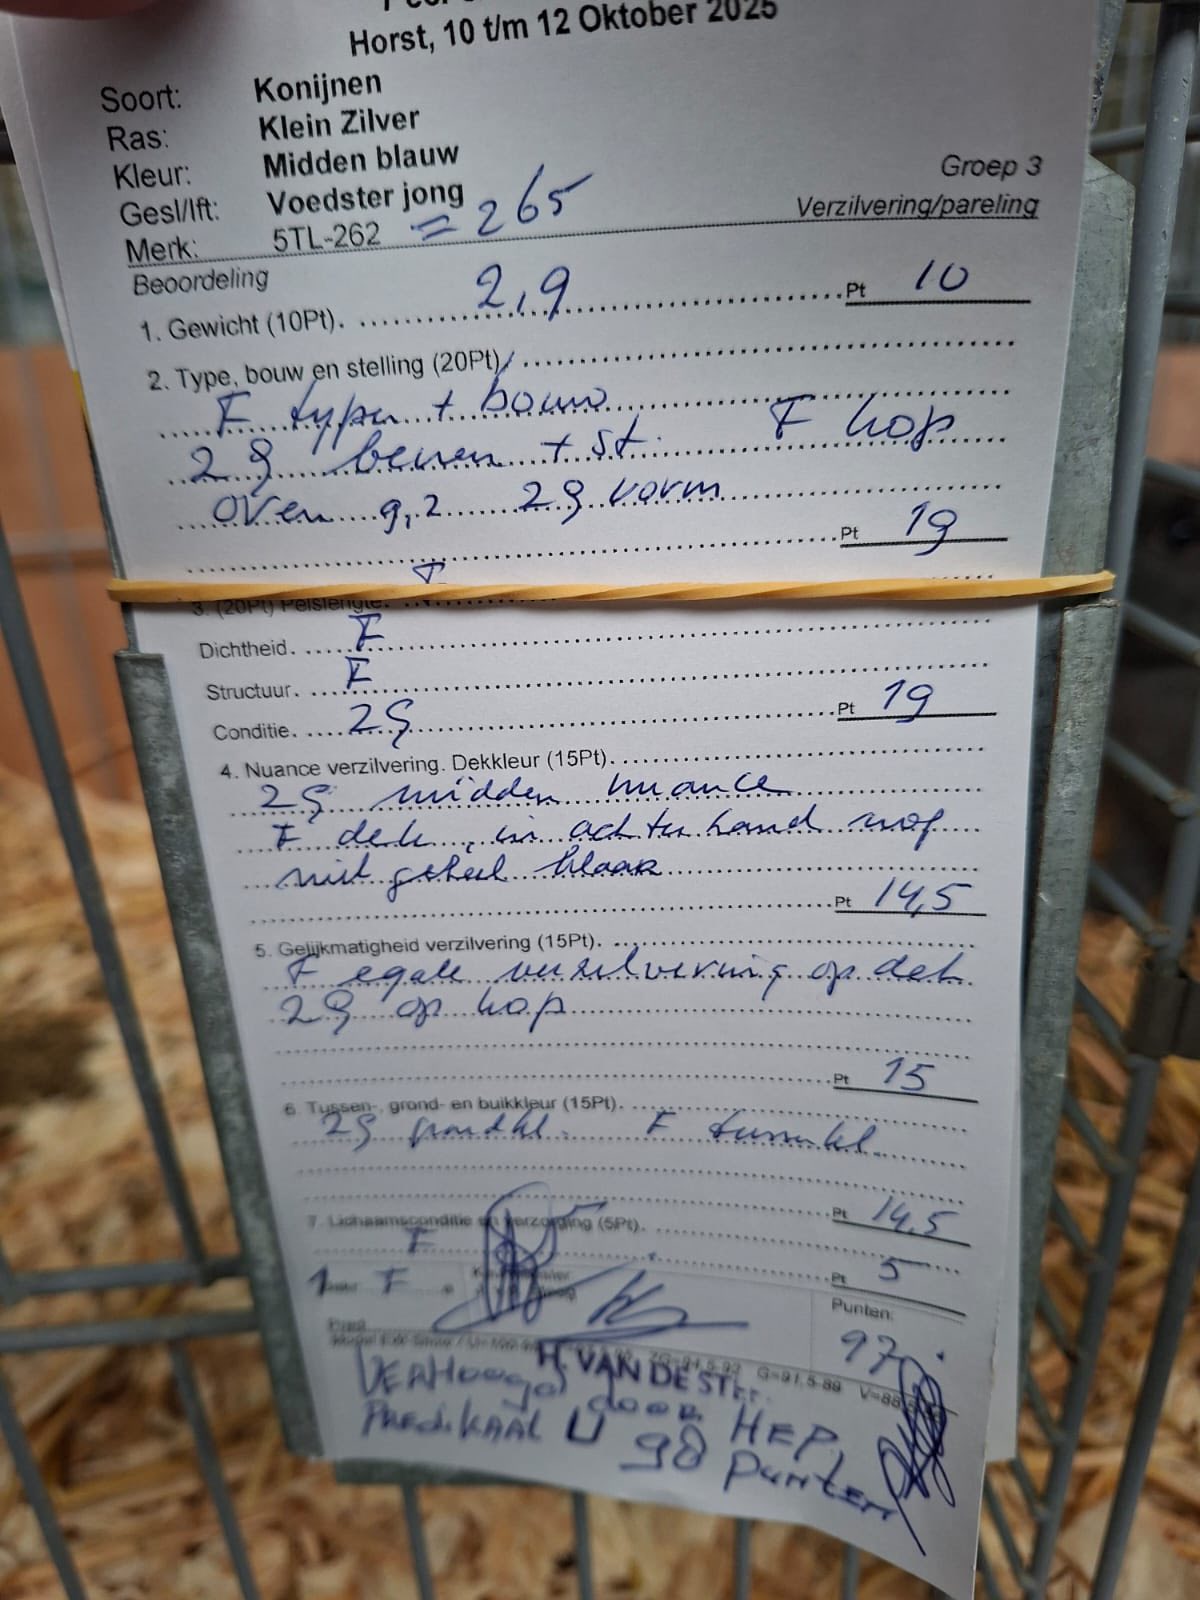 Horst, 10 t/m 12 Oktober 2025
Soort: Konijnen
Ras: Klein Zilver
Kleur: Midden blauw
Gesl/lft: Voedster jong
Groep 3
Merk: 5TL-262 = 265
Verzilvering/pareling
Beoordeling
1. Gewicht (10Pt). 2,9 Pt 10
2. Type, bouw en stelling (20Pt)
F type + bouw
ZG benen + st. F kop
oren 9,2 ZG vorm
Pt 19
3. (20Pt) Pelslengte. F
Dichtheid. F
Structuur. F
Conditie. ZG Pt 19
4. Nuance verzilvering. Dekkleur (15Pt).
ZG midden nuance
F dekk, in achterhand nog
niet geheel klaar
Pt 14,5
5. Gelijkmatigheid verzilvering (15Pt).
F egale verzilvering op dek
ZG op kop
Pt 15
6. Tussen-, grond- en buikkleur (15Pt).
ZG grondkl. F tussenkl.
Pt 14,5
7. Lichaamsconditie en verzorging (5Pt).
F Pt 5
F
Punten:
97
ZG=94,5-92 G=91,5-89
H. VAN DE
VERHoogd door HEP
PREdiKAAt U 98 Punten